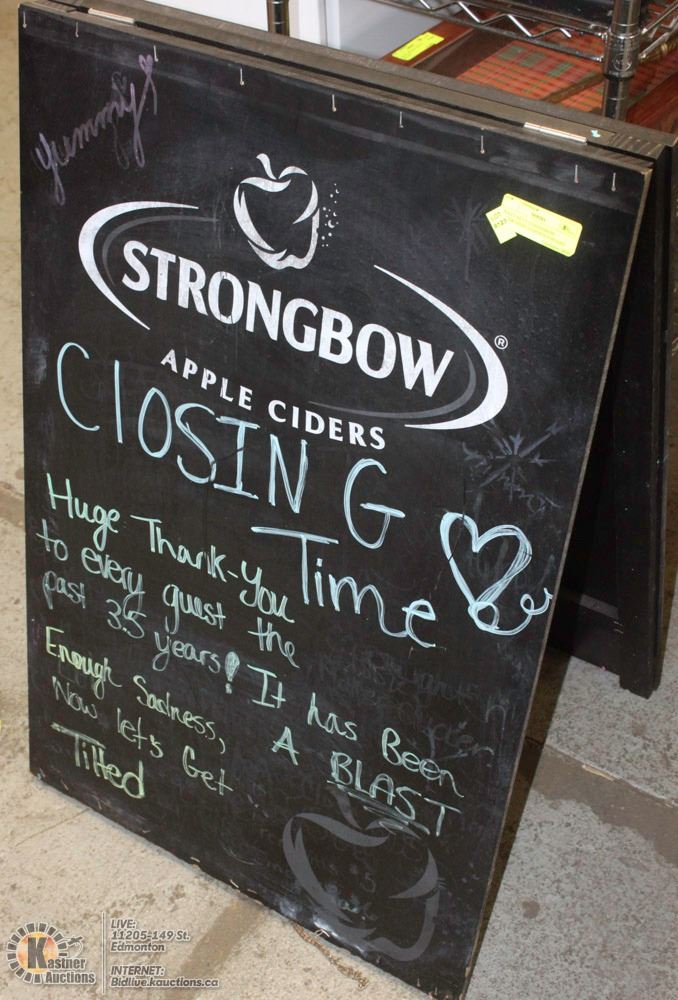 yummy!
STRONGBOW®
APPLE CIDERS
ClOSING
Time
Huge Thank-You
to every guest the
past 3.5 years! It has Been
A BLAST
Enough Sadness,
Now let's Get
Tilted
Kastner
Auctions
LIVE:
11205-149 St.
Edmonton
INTERNET:
Bidlive.kauctions.ca